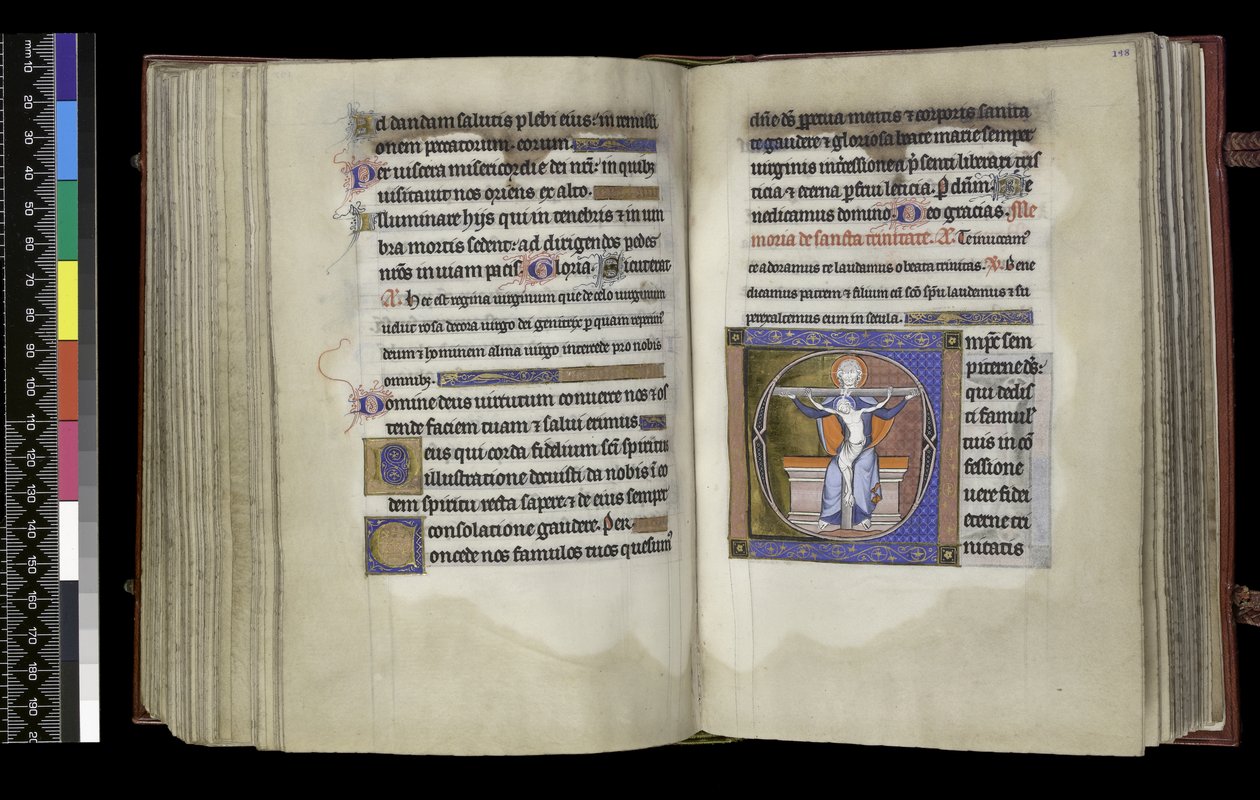 Ad dandam salutis plebi eius: in remissi
onem peccatorum. eorum
Per uiscera misericordie dei nr̄i: in quibꝫ
uisitauit nos oriens ex alto.
Illuminare hijs qui in tenebris ⁊ in um
bra mortis sedent: ad dirigendos pedes
nr̄os in uiam pacis. Gloria. Sicut erat
A. Hec est regina uirginum que de celo uirginum
uelut rosa decora uirgo dei genitrix p quam
deum ⁊ hominem alma uirgo intercede pro nobis
omnibꝫ.
Domine deus uirtutum conuerte nos ⁊ os
tende faciem tuam ⁊ salui erimus.
Deus qui corda fidelium sc̄i spiritus
illustratione docuisti da nobis ī eo
dem spiritu recta sapere: ⁊ de eius semper
consolatione gaudere. Per.
Concede nos famulos tuos quesum
198
dn̄e ds̄ ꝑpetua mentis ⁊ corporis sanita
te gaudere ⁊ gloriosa beate marie semper
uirginis intercessione a p̄senti liberari tris
ticia ⁊ eterna ꝑfrui leticia. P dn̄m. Be
nedicamus domino. Deo gracias. Me
moria de sancta trinitate. A. Te inuocam᷒
te adoramus te laudamus o beata trinitas. V. Bene
dicamus patrem ⁊ filium cū sc̄o sp̄u laudemus ⁊ su
perexaltemus eum in secula.
Omp̄c sem
piterne ds̄:
qui dedis
ti famul᷒
tuis in cō
fessione
uere fidei
eterne tri
nitatis
mm 10 20 30 40 50 60 70 80 90 100 110 120 130 140 150 160 170 180 190